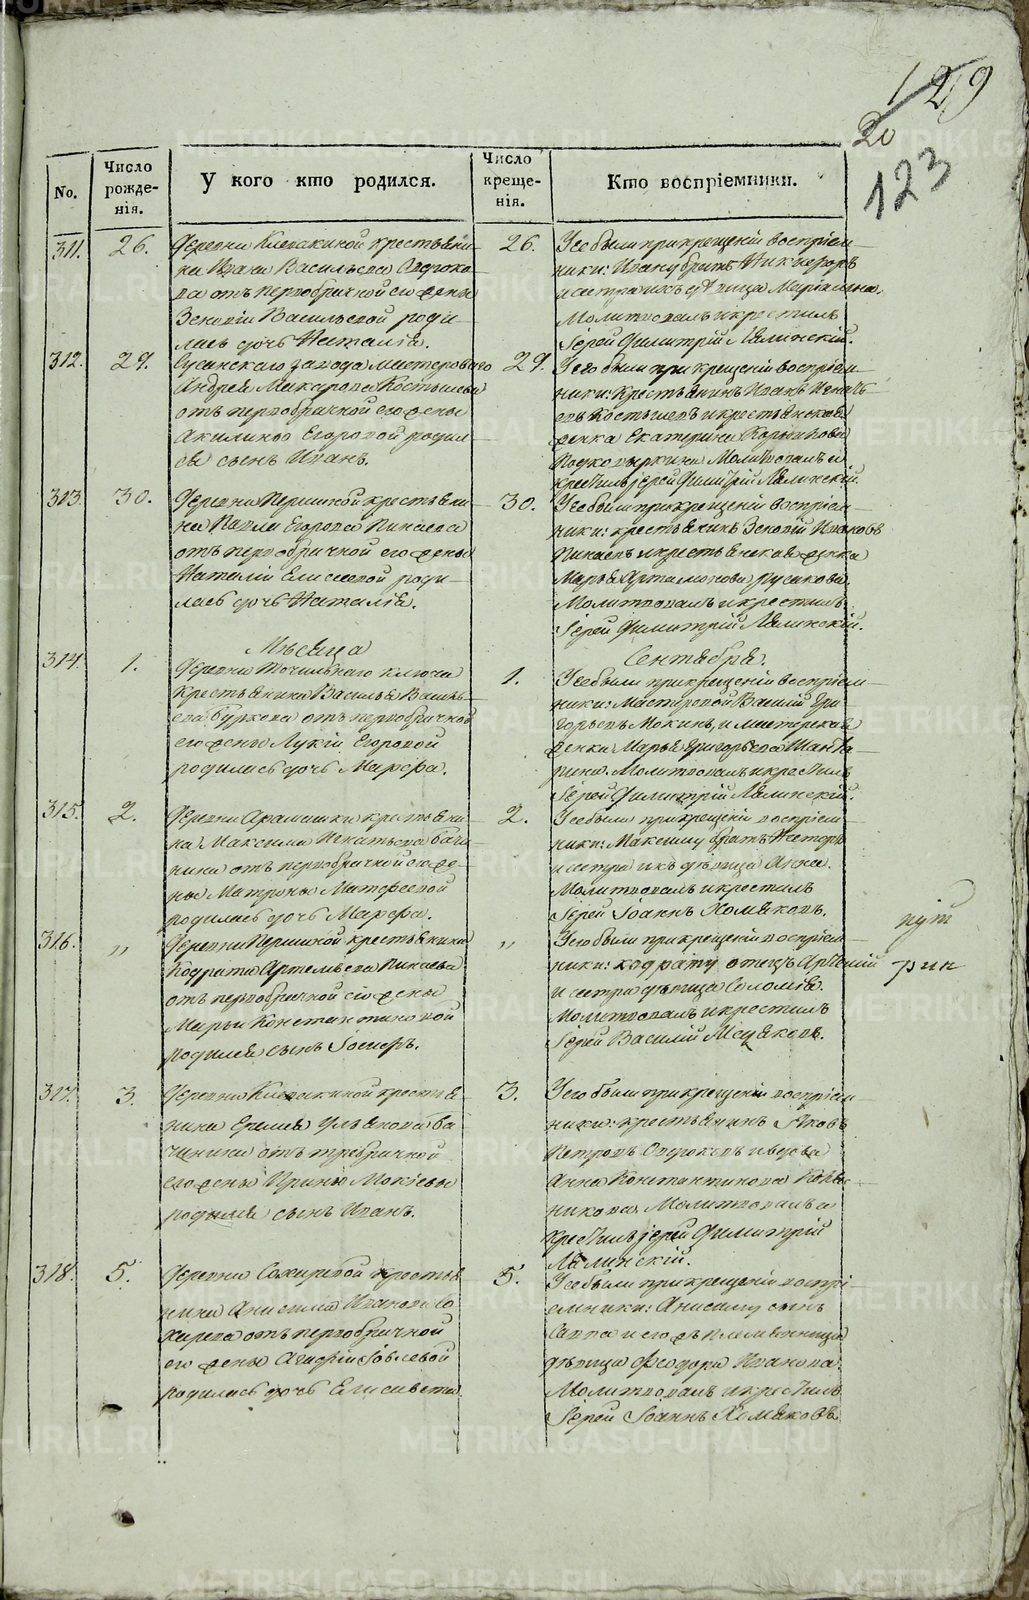 129
20
123
No.
Число рожденія.
У кого кто родился.
Число крещенія.
Кто воспріемники.
311.
26.
Деревни Клевакиной крестьяни-
на Ивана Васильева
отъ первобрачной его жены
Зеновіи Васильевой роди-
лась дочь Наталія.
26.
У ее были при крещеніи воспріем-
ники: Ивану братъ Никифоръ
и сестра ихъ дѣвица
Молитвовалъ и крестилъ
Іерей Димитрій Лялинскій.
312.
29.
Сусанскаго завода мастероваго
Андрея Макарова Костылева
отъ первобрачной его жены
Акилины Егоровой родил-
ся сынъ Иванъ.
29.
У его были при крещеніи воспріем-
ники: Крестьянинъ Иванъ
Костылевъ и крестьянская
женка Екатерина
Молитвовалъ и
крестилъ іерей Димитрій Лялинскій.
313.
30.
Деревни Першиной крестьяни-
на Павла Егорова Пинаева
отъ первобрачной его жены
Наталіи Елисеевой роди-
лась дочь Наталія.
30.
У ее были при крещеніи воспріем-
ники: крестьянинъ Зеновій Ивановъ
Пинаевъ и крестьянская женка
Марья Артамонова Русакова.
Молитвовалъ и крестилъ
Іерей Димитрій Лялинскій.
Мѣсяца
Сентября.
314.
1.
Деревни Точильнаго ключа
Крестьянина Василья Василь-
ева Буркова отъ первобрачной
его жены Лукіи Егоровой
родилась дочь Марѳа.
1.
У ее были при крещеніи воспріем-
ники: Мастеровой Василій Гри-
горьевъ Мокинъ, и мастерская
женка Марья Григорьева
Молитвовалъ и крестилъ
Іерей Димитрій Лялинскій.
315.
2.
Деревни Арамашки крестьяни-
на Максима Игнатьева Бачи-
нина отъ первобрачной его же-
ны Матроны Матѳеевой
родилась дочь Марѳа.
2.
У ее были при крещеніи воспріем-
ники: Максиму братъ Нестеръ
и сестра ихъ дѣвица Анна.
Молитвовалъ и крестилъ
Іерей Іоаннъ Хомяковъ.
316.
„
Деревни Першиной крестьянина
Кодрата Артемьева Пинаева
отъ первобрачной его жены
Марьи Константиновой
родился сынъ Іосифъ.
„
У его были при крещеніи воспріем-
ники: Кодрату отецъ Артемій
и сестра дѣвица Соломія.
Молитвовалъ и крестилъ
Іерей Василій
317.
3.
Деревни Клевакиной крестья-
нина Еремея Ульянова Ба-
чинина отъ требрачной
его жены Ирины Мокіевы
родился сынъ Иванъ.
3.
У его были при крещеніи воспріем-
ники: крестьянинъ Яковъ
Петровъ и вдова
Анна Константинова
Молитвовалъ и
крестилъ іерей Димитрій
Лялинскій.
318.
5.
Деревни Сохаревой крестья-
нина Анисима Иванова Со-
харева отъ первобрачной
его жены Агафіи Іовлевой
родилась дочь Елисавета.
5.
У ее были при крещеніи воспрі-
емники: Анисиму сынъ
Савва и его племянница
дѣвица Ѳеодора Иванова.
Молитвовалъ и крестилъ
Іерей Іоаннъ Хомяковъ.